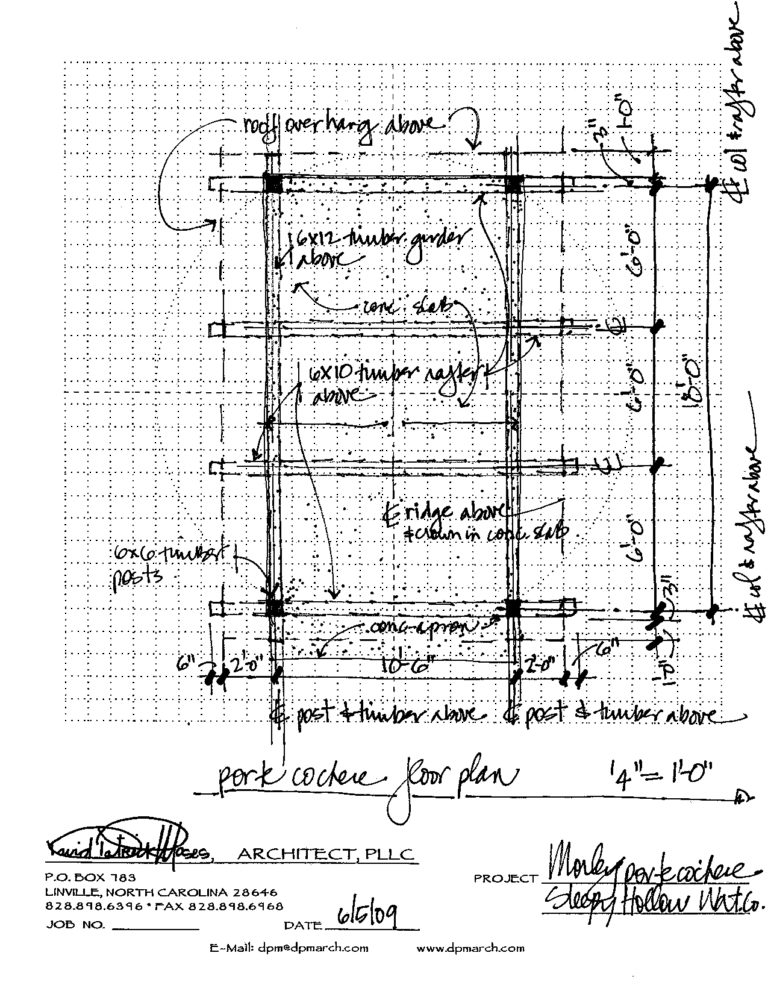 ℄ col & rafter above
roof overhang above
3"
1'-0"
6x12 timber girder
above
6'-0"
conc slab
℄
6x10 timber rafter
above
6'-0"
18'-0"
℄
℄ ridge above
& crown in conc slab
6'-0"
℄ col & rafter above
6x6 timber
posts
3"
conc apron
6"
2'-0"
10'-6"
2'-0"
6"
1'-0"
℄ post & timber above
℄ post & timber above
porte cochere floor plan
1/4" = 1'-0"
David Patrick Moses, ARCHITECT, PLLC
P.O. BOX 783
LINVILLE, NORTH CAROLINA 28646
828.898.6396 * FAX 828.898.6968
JOB NO.
DATE 6/5/09
PROJECT Morley porte cochere
Sleepy Hollow Wat. Co.
E-Mail: dpm@dpmarch.com www.dpmarch.com